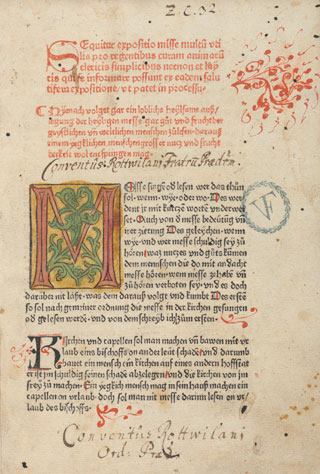 Z.C.02
SEquitur expositio misse multũ vti
lis pro regentibus curam animarũ
clericis simplicibus necnon et lay
tis qui se informare possunt ex eadem salu
tifera expositione, vt patet in processu
HYrnach volget gar ein lobliche heylsame auß
legung der heyligen messe gar gũt vnd fruchtber
geystlichen vñ werltlichen menschen zũ lesen. darauß
einem yeglichen menschen grosser nucz vnd frucht
berkeit wol entspringen mag.
Conventus Rottwilani Fratrũ Præden:
MEsse singen od lesen wer das thun
sol. wenn. wye. oder wo. Des wer
dent ir mit kurtzen worten vnderwey
set. Auch von d messe bedeütung vñ
ner zirung Des geleychen. wenn
wye. vnd wer messe schuldig sey zũ
hören. was nuczes vnd gũts kũmen
dem menschen die do mit andacht
messe hören. wem messe zehabẽ vñ
zũ hören verboten sey. vnd es doch
darüber nit laßt. was dem darauß volgt vnd kumbt Des erstẽ
so sol nach gemeiner ordnung die messe in der kirchen gesungen
od gelesen werdẽ. vnd von dem schreyb ich zũm ersten.
KJrchen vnd capellen sol man machen vñ bawen mit vr
laub eins bischoffs on ander leüt schaden vnd darumb
bawet ein mensch ein kirchen auf eines andern hoffstat
er ist jm schuldig seinen schadẽ abzelegen. vnd die kirchen von jm
frey zũ machen. Ein yeglich mensch mag in seim hauß machen ein
capellen on vrlaub. doch sol man nit messe darinn lesen on vr
laub des bischoffs.
Conventus Rottwilani
Ord: Præd: